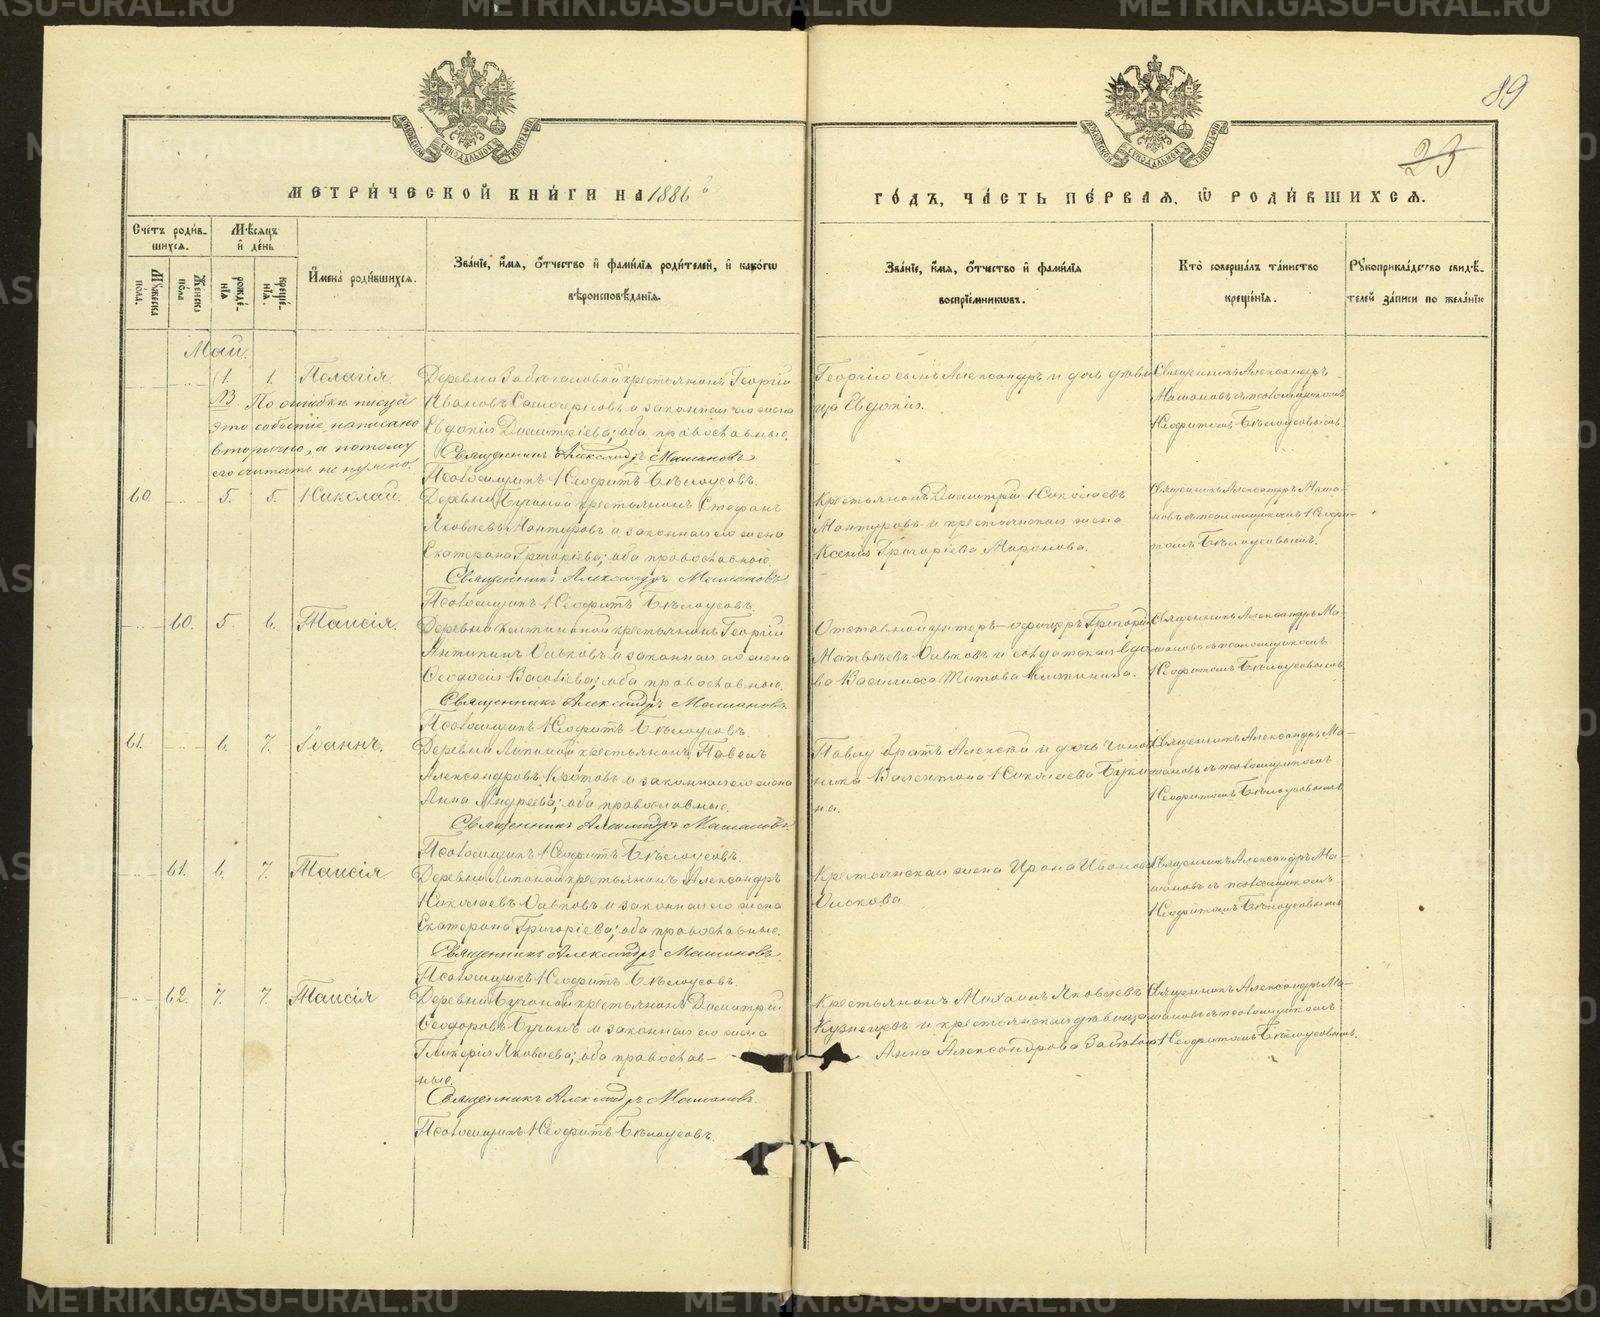 89
23
МЕТРИЧЕСКОЙ КНИГИ НА 1886й
ГОДЪ, ЧАСТЬ ПЕРВАЯ, Ѿ РОДИВШИХСЯ.
Счетъ родившихся.
Мѣсяцъ и день
Имена родившихся.
Званіе, имя, отчество и фамилія родителей, и какогѡ
вѣроисповѣданія.
Званіе, имя, отчество и фамилія
воспріемникѡвъ.
Кто совершалъ таинство
крещенія.
Рукоприкладство свидѣ-
телей записи по желанію
Мужеска пола.
Женска пола
рожденія
крещенія.
Май.
1. 1. Пелагія.
Деревни крестьянинъ Георгій
Ивановъ и законная его жена
Евдокія Дмитріева; оба православные.
Священникъ Александръ Машановъ
Псаломщикъ Неофитъ Бѣлоусовъ.
NB. По ошибкѣ писца
это событіе написано
вторично, а потому
его считать не нужно.
Георгія сынъ Александръ и дочь дѣви
ца Евдокія.
Священникъ Александръ
Машановъ съ псаломщикомъ
Неофитомъ Бѣлоусовымъ.
60. 5. 5. Николай.
Деревни крестьянинъ Стефанъ
Яковлевъ Мантуровъ и законная его жена
Екатерина Григоріева; оба православные.
Священникъ Александръ Машановъ
Псаломщикъ Неофитъ Бѣлоусовъ.
Крестьянинъ Димитрій Николаевъ
Мантуровъ и крестьянская жена
Ксенія Григоріева Миронова.
Священникъ Александръ Маша-
новъ съ псаломщикомъ Неофи-
томъ Бѣлоусовымъ.
60. 5. 6. Таисія.
Деревни крестьянинъ Георгій
Антипинъ и законная его жена
Ѳеодосія Василіева; оба православные.
Священникъ Александръ Машановъ
Псаломщикъ Неофитъ Бѣлоусовъ
Отставной унтеръ-офицеръ Григорій
Матвѣевъ и солдатская вдо
ва Василиса Титова
Священникъ Александръ Ма-
шановъ съ псаломщикомъ
Неофитомъ Бѣлоусовымъ
61. 6. 7. Іоаннъ.
Деревни Липиной крестьянинъ Павелъ
Александровъ Кротовъ и законная его жена
Анна Андреева; оба православные.
Священникъ Александръ Машановъ.
Псаломщикъ Неофитъ Бѣлоусовъ.
Павлу братъ Алексѣй и дочь чинов
ника Валентина Николаева Буки
на.
Священникъ Александръ Ма-
шановъ съ псаломщикомъ
Неофитомъ Бѣлоусовымъ
61. 6. 7. Таисія
Деревни Липиной крестьянинъ Александръ
Николаевъ и законная его жена
Екатерина Григоріева; оба православные.
Священникъ Александръ Машановъ.
Псаломщикъ Неофитъ Бѣлоусовъ.
Крестьянская жена Ирина Иванова
Священникъ Александръ Ма-
шановъ съ псаломщикомъ
Неофитомъ Бѣлоусовымъ
62. 7. 7. Таисія
Деревни крестьянинъ Димитрій
Ѳеодоровъ и законная его жена
Гликерія Яковлева; оба православ-
ные.
Священникъ Александръ Машановъ.
Псаломщикъ Неофитъ Бѣлоусовъ.
Крестьянинъ Михаилъ Яковлевъ
Кузнецевъ и крестьянская дѣвица
Анна Александрова
Священникъ Александръ Ма-
шановъ съ псаломщикомъ
Неофитомъ Бѣлоусовымъ.
METRIKI.GASO-URAL.RU